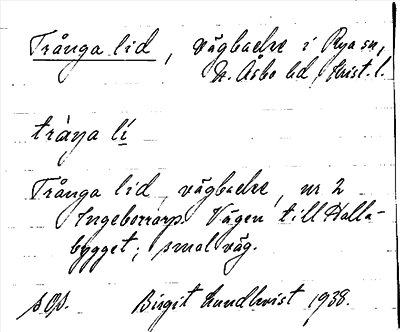 Trånga lid, vägbacke i Rya sn,
N. Åsbo hd, Krist. l.
tråŋa lí
Trånga lid, vägbacke, nr 2
Ingeborrarp. Vägen till Halla-
bygget; smal väg.
Birgit Lundkvist 1938.